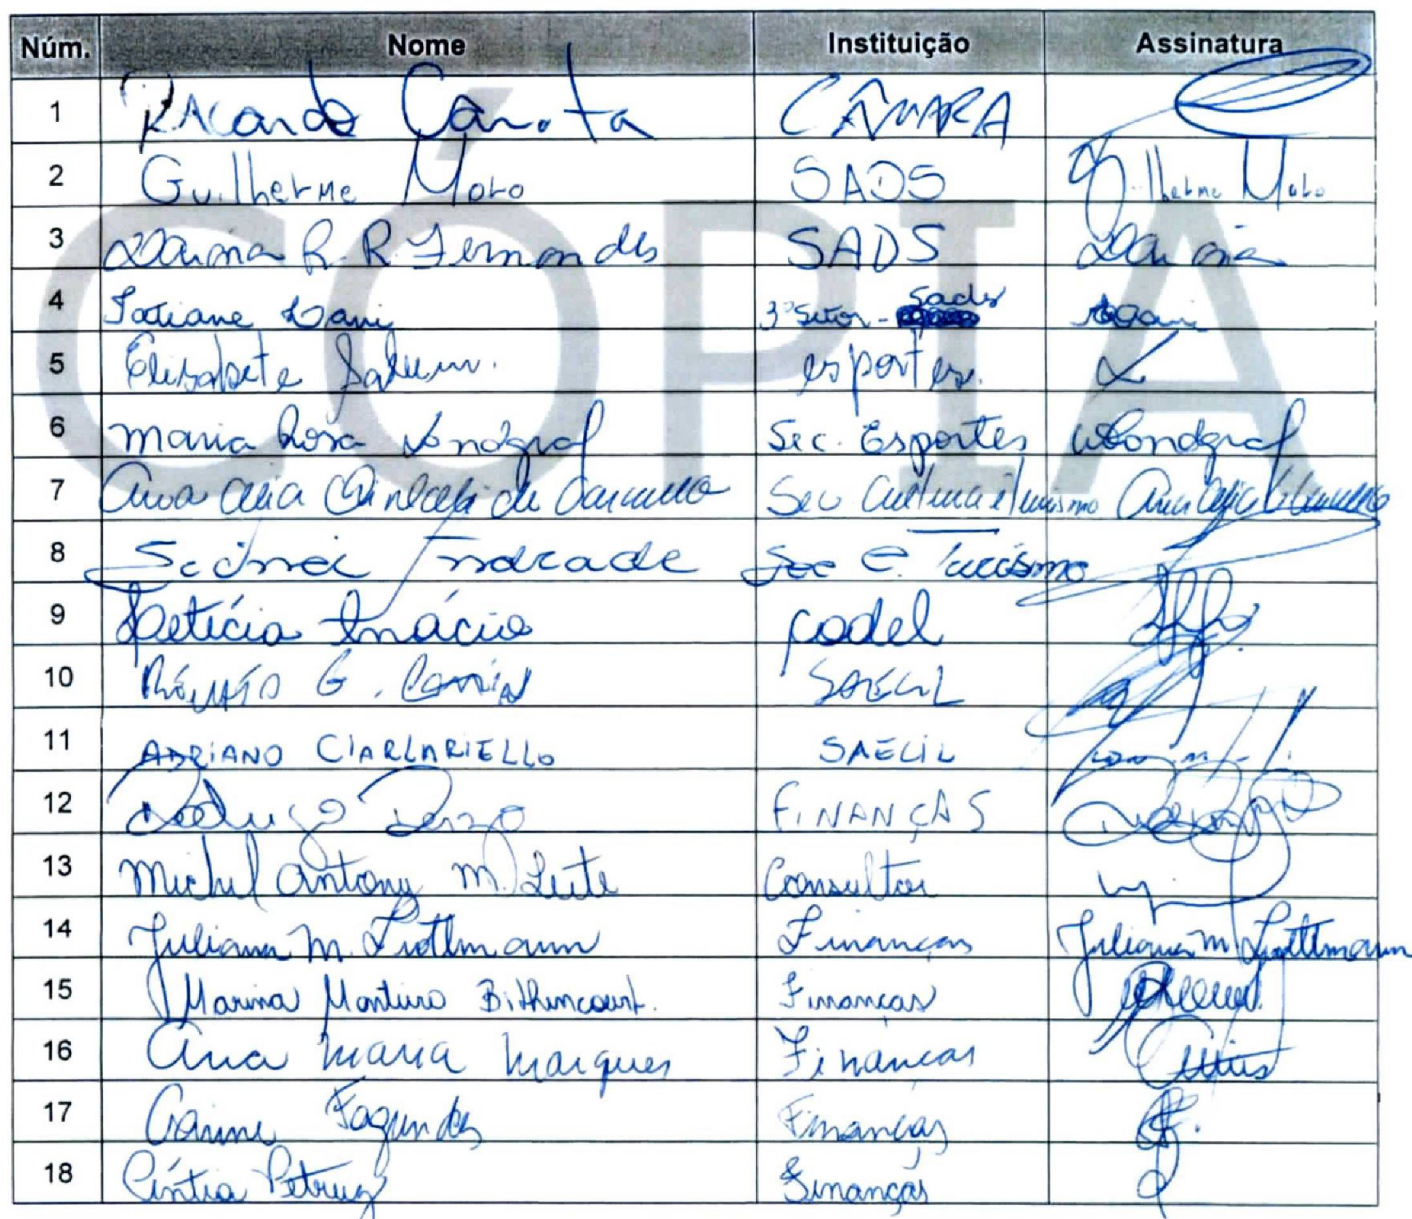 Núm. Nome Instituição Assinatura
CÓPIA
1 Ricardo Canata CÂMARA
2 Guilherme Moro SADS Guilherme Moro
3 R. R. Fernandes SADS
4 Tatiane 3º Setor - Sads
5 Elisabete Salum. esportes.
6 Maria Rosa Sec. Esportes
7 Ana Célia de Carvalho Sec Cultura e Turismo
8 Sidnei Andrade Sec C. Turismo
9 Letícia Inácio codel
10 G. SAECIL
11 ADRIANO CIARLARIELLO SAECIL
12 Rodrigo FINANÇAS
13 Michel Antony M. Leite Consultor
14 Juliana M. Finanças Juliana M.
15 Marina Monteiro Bithencourt. Finanças
16 Ana Maria Marques Finanças
17 Fagundes Finanças
18 Cíntia Finanças